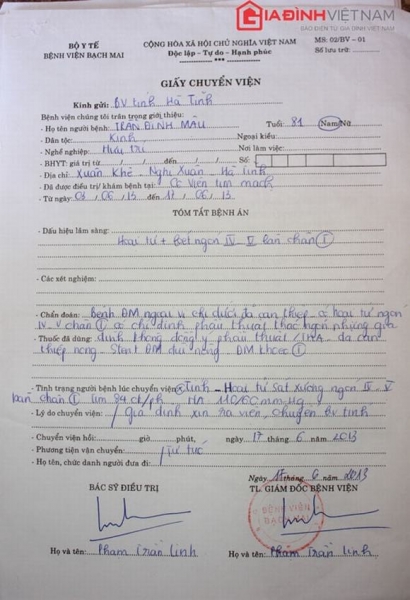 GIAĐÌNHVIỆTNAM
BÁO ĐIỆN TỬ GIA ĐÌNH VIỆT NAM
BỘ Y TẾ
BỆNH VIỆN BẠCH MAI
CỘNG HÒA XÃ HỘI CHỦ NGHĨA VIỆT NAM
Độc lập - Tự do - Hạnh phúc
MS: 02/BV - 01
Số lưu trữ:
GIẤY CHUYỂN VIỆN
Kính gửi: BV tỉnh Hà Tĩnh
Bệnh viện chúng tôi trân trọng giới thiệu:
- Họ tên người bệnh: TRẦN ĐÌNH MẬU Tuổi: 81 Nam/Nữ
- Dân tộc: Kinh Ngoại kiều:
- Nghề nghiệp: Hưu trí Nơi làm việc:
- BHYT: giá trị từ / / đến / / Số:
- Địa chỉ: Xuân Nghi Xuân Hà Tĩnh
- Đã được điều trị/ khám bệnh tại: Viện tim mạch
- Từ ngày: 06, 13 đến 17, 06, 13
TÓM TẮT BỆNH ÁN
- Dấu hiệu lâm sàng:
Hoại tử ngón IV - V bàn chân
- Các xét nghiệm:
- Chẩn đoán: Bệnh ĐM ngoại vi chi dưới đã can thiệp có hoại tử ngón
IV - V chân có chỉ định phẫu thuật tháo ngón nhưng gia
- Thuốc đã dùng: đình không đồng ý phẫu thuật / THA đã can
thiệp nong Stent ĐM đùi nông ĐM khoeo
- Tình trạng người bệnh lúc chuyển viện: Tỉnh - Hoại tử sát xương ngón V
bàn chân tim 84 ck/ph HA 110/60 mmHg
- Lý do chuyển viện: Gia đình xin ra viện, chuyển BV tỉnh
- Chuyển viện hồi: giờ phút, ngày 17 tháng 6 năm 2013
- Phương tiện vận chuyển: Tự túc
- Họ tên, chức danh người đưa đi:
Ngày 17 tháng 6 năm 2013
BÁC SỸ ĐIỀU TRỊ TL. GIÁM ĐỐC BỆNH VIỆN
BỆNH VIỆN
BẠCH MAI
Họ và tên: Phạm Trần Linh Họ và tên: Phạm Trần Linh